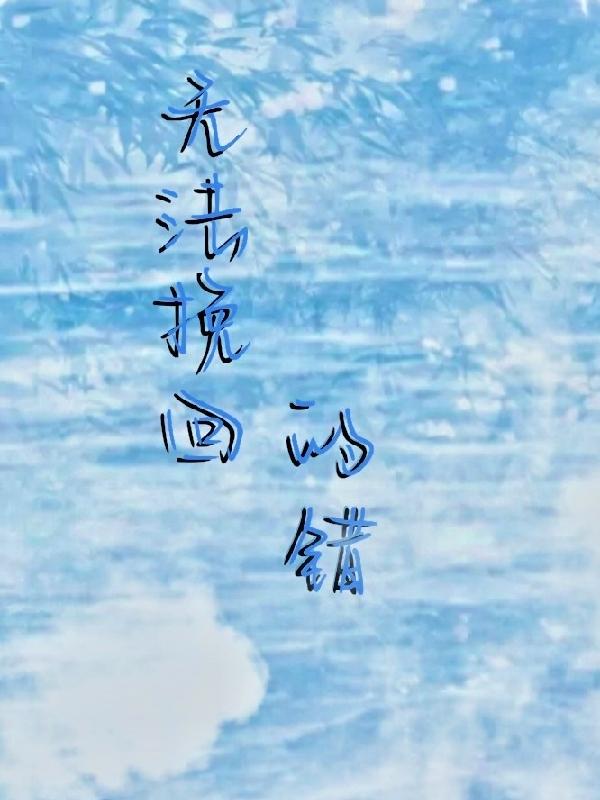 无法挽回
的错